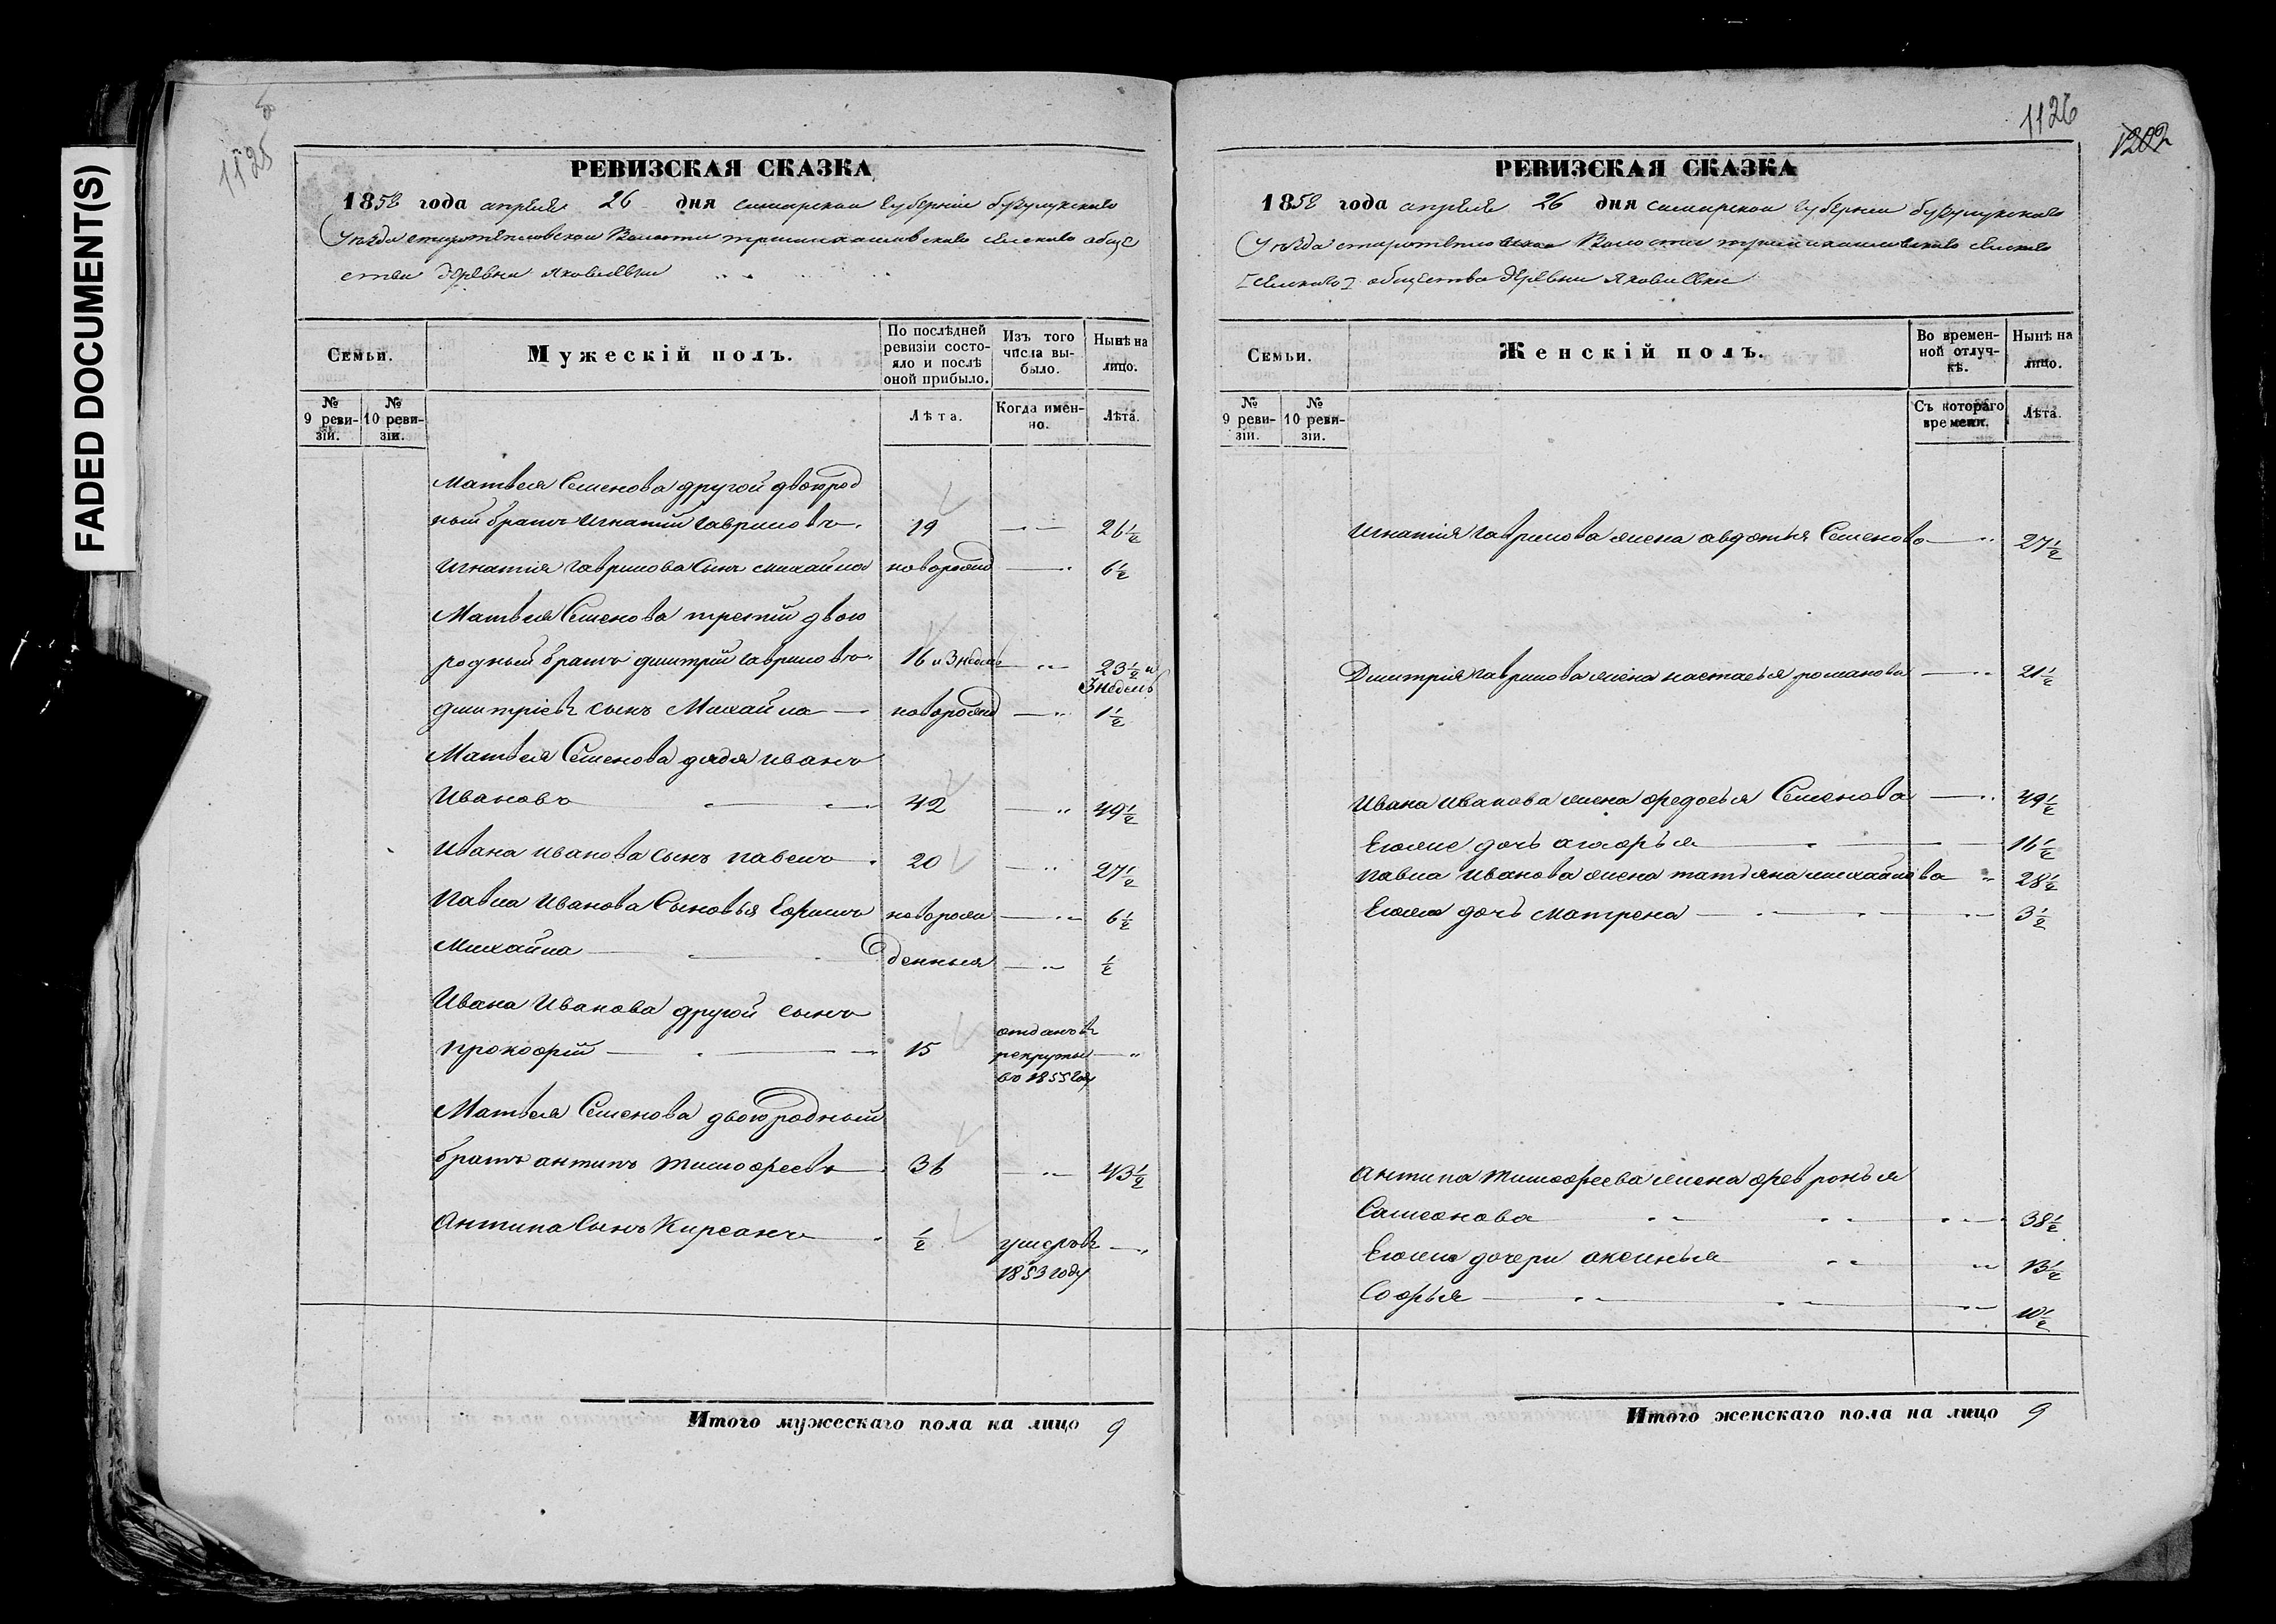 FADED DOCUMENT(S)
1125
РЕВИЗСКАЯ СКАЗКА
1858 года апреля 26 дня самарской губернии бузулукскаго
Уезда
общества деревни Яковлевки
Семьи.
Мужескій полъ.
По послѣдней ревизіи состояло и послѣ оной прибыло.
Изъ того числа выбыло.
Нынѣ на лицо.
№ 9 ревизіи.
№ 10 ревизіи.
Лѣта.
Когда именно.
Лѣта.
Матвея Семенова другой двоюрод
ный братъ Игнатий гавриловъ 19 26½
Игнатия гаврилова Сынъ михайла новорожд 6½
Матвея Семенова третий двою
родный братъ дмитрий гавриловъ 16 и 3 недели 23½ и
3 недель
дмитриевъ сынъ Михайла новорожд 1½
Матвея Семенова дядя иванъ
Ивановъ 42 49½
Ивана иванова сынъ павелъ 20 27½
Павла Иванова Сыновья Ефимъ новорож 6½
Михайла денныя ½
Ивана Иванова другой сынъ отданъ в
прокофий 15 рекруты
во 1855 году
Матвея Семенова двоюродный
братъ антипъ тимофеевъ 36 43½
Антипа Сынъ Кирсанъ ½ умеръ в
1853 году
Итого мужескаго пола на лицо 9
1126
1202
РЕВИЗСКАЯ СКАЗКА
1858 года апреля 26 дня самарской губернии бузулукскаго
Уезда
общества деревни Яковлевки
Семьи.
Женскій полъ.
Во временной отлучкѣ.
Нынѣ на лицо.
№ 9 ревизіи.
№ 10 ревизіи.
Съ котораго времени.
Лѣта.
Игнатия гаврилова жена авдотья Семенова 27½
Дмитрия гаврилова жена настасья романова 21½
Ивана иванова жена федосья Семенова 49½
Егоже дочь агафья 16½
павла Иванова жена татьяна михайлова 28½
Егоже дочь матрена 3½
Антипа тимофеева жена февронья
Самсонова 38½
Егоже дочери аксинья 13½
Софья 10½
Итого женскаго пола на лицо 9